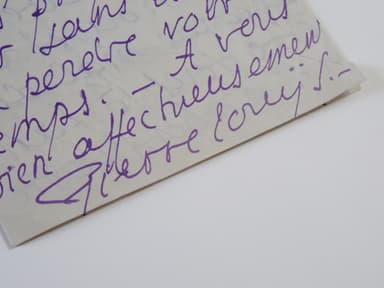 sans
perdre vo
emps. — A vous
bien affectueusement
Pierre Louÿs.-